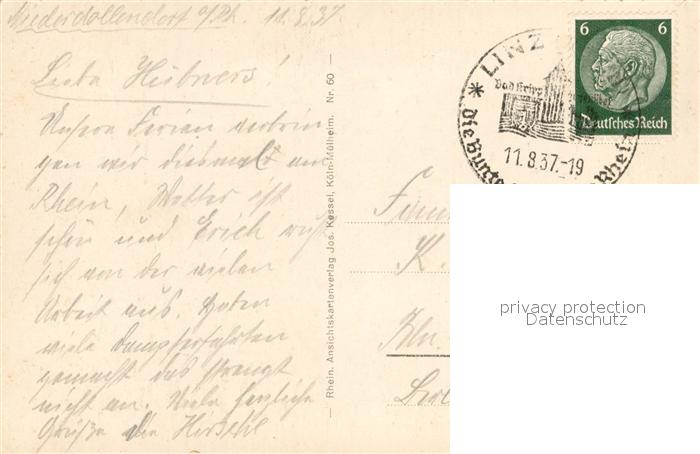 Niederdollendorf a/Rh. 11.8.37.
Liebe Hübners!
Unsere Ferien verbrin
gen wir diesmal am
Rhein, Wetter ist
schön und Erich ruht
sich von der vielen
Arbeit aus. Haben
viele Dampferfahrten
gemacht das strengt
nicht an. Viele herzliche
Grüße die
Rhein. Ansichtskartenverlag Jos. Kessel, Köln-Mülheim. Nr. 60
6 6
Deutsches Reich
* LINZ
Die Bunte Rhein
11.8.37.-19
Fam
K.
Bln.
privacy protection
Datenschutz